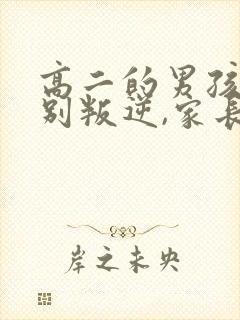 高二的男孩
别叛逆,家长
岸之未央